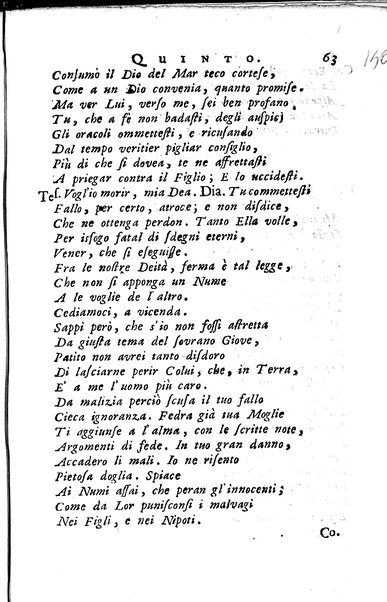 QUINTO. 63
Conſumò il Dio del Mar teco corteſe,
Come a un Dio convenia, quanto promiſe.
Ma ver Lui, verſo me, ſei ben profano,
Tu, che a fè non badaſti, degli auſpicj
Gli oracoli ommetteſti, e ricuſando
Dal tempo veritier pigliar conſiglio,
Più di che ſi dovea, te ne affrettaſti
A priegar contra il Figlio; E lo uccideſti.
Teſ. Vogl'io morir, mia Dea. Dia. Tu commetteſti
Fallo, per certo, atroce; e non diſdice,
Che ne ottenga perdon. Tanto Ella volle,
Per isfogo fatal di ſdegni eterni,
Vener, che ſi eſeguiſſe.
Fra le noſtre Deità, ferma è tal legge,
Che non ſi apponga un Nume
A le voglie de l'altro.
Cediamoci, a vicenda.
Sappi però, che s'io non foſſi aſtretta
Da giuſta tema del ſovrano Giove,
Patito non avrei tanto diſdoro
Di laſciarne perir Colui, che, in Terra,
E' a me l'uomo più caro.
Da malizia perciò ſcuſa il tuo fallo
Cieca ignoranza. Fedra già tua Moglie
Ti aggiunſe a l'alma, con le ſcritte note,
Argomenti di fede. In tuo gran danno,
Accadero li mali. Io ne riſento
Pietoſa doglia. Spiace
Ai Numi aſſai, che peran gl'innocenti;
Come da Lor puniſconſi i malvagi
Nei Figli, e nei Nipoti.
Co.